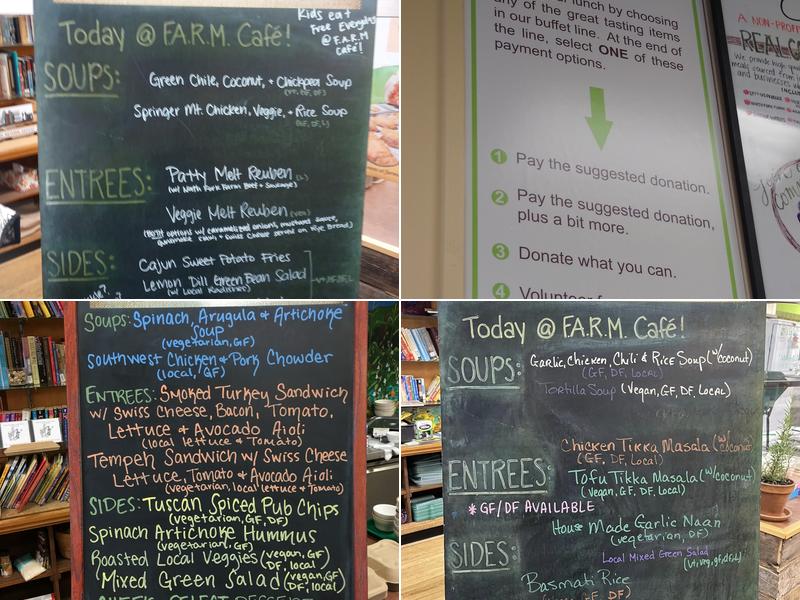 Kids eat
Free Everyday
@ F.A.R.M
Café!
Today @ F.A.R.M. Café!
SOUPS:
Green Chile, Coconut, + Chickpea Soup
Springer Mt. Chicken, Veggie, + Rice Soup
ENTREES:
Patty Melt Reuben
(w/ North Fork Farm Beef + Sausage)
Veggie Melt Reuben
(Both options w/ caramelized onions, mustard sauce,
kraut, + Swiss Cheese served on Rye Bread)
SIDES:
Cajun Sweet Potato Fries
Lemon Dill Green Bean Salad
(w/ Local Radishes)
lunch by choosing
any of the great tasting items
in our buffet line. At the end of
the line, select ONE of these
payment options.
1 Pay the suggested donation.
2 Pay the suggested donation,
plus a bit more.
3 Donate what you can.
4 Volunteer
A NON-PROFIT
REAL
SOUPS: Spinach, Arugula & Artichoke
Soup
(vegetarian, GF)
Southwest Chicken & Pork Chowder
(local, GF)
ENTREES: Smoked Turkey Sandwich
w/ Swiss Cheese, Bacon, Tomato,
Lettuce & Avocado Aioli
(local lettuce & Tomato)
Tempeh Sandwich w/ Swiss Cheese
Lettuce, Tomato & Avocado Aioli
(vegetarian, local lettuce & Tomato)
SIDES: Tuscan Spiced Pub Chips
(vegetarian, GF, DF)
Spinach Artichoke Hummus
(vegetarian, GF)
Roasted Local Veggies (vegan, GF, DF, local)
Mixed Green Salad (vegan, GF, DF, local)
Today @ F.A.R.M. Café!
SOUPS:
Garlic, Chicken, Chili & Rice Soup (w/ coconut)
(GF, DF, Local)
Tortilla Soup (Vegan, GF, DF, Local)
ENTREES:
Chicken Tikka Masala (w/ coconut)
(GF, DF, Local)
Tofu Tikka Masala (w/ coconut)
(Vegan, GF, DF, Local)
* GF/DF AVAILABLE
House Made Garlic Naan
(vegetarian, DF)
SIDES:
Local Mixed Green Salad
Basmati Rice